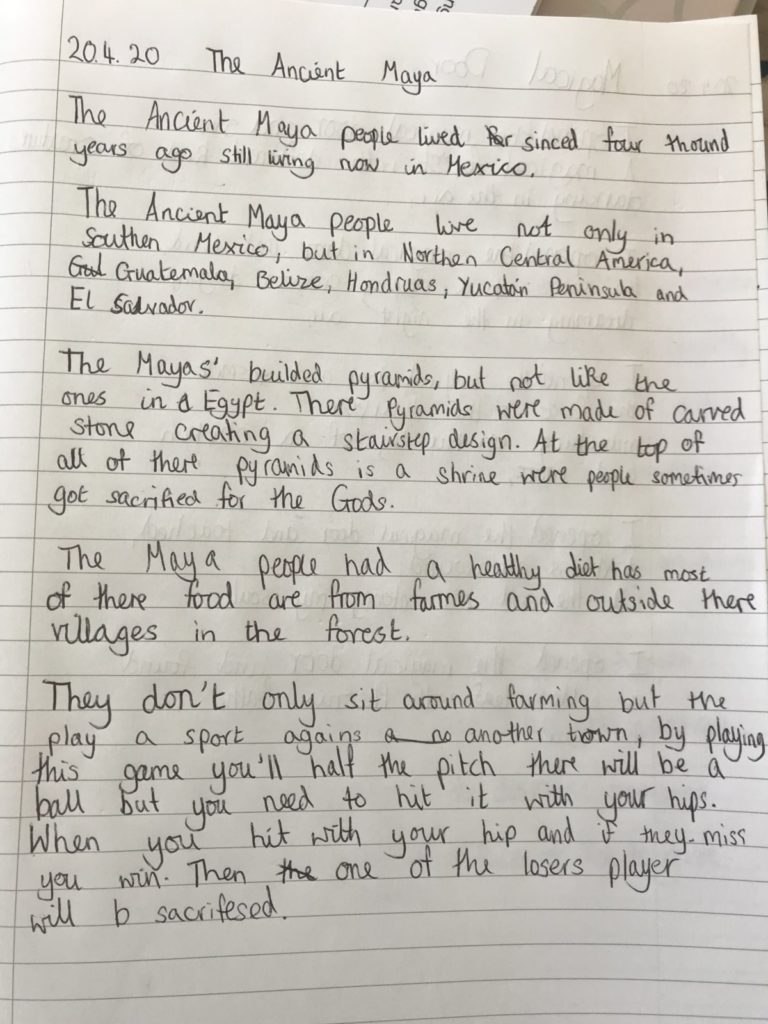 20.4.20 The Ancient Maya
The Ancient Maya people lived for sinced four thound
years ago still living now in Mexico.
The Ancient Maya people live not only in
Southen Mexico, but in Northen Central America,
Gud Guatemala, Belize, Hondruas, Yucatán Peninsula and
El Salvador.
The Mayas' builded pyramids, but not like the
ones in a Egypt. There pyramids were made of carved
stone creating a stairstep design. At the top of
all of there pyramids is a shrine were people sometimes
got sacrified for the Gods.
The Maya people had a healthy diet has most
of there food are from farmes and outside there
villages in the forest.
They don't only sit around farming but the
play a sport agains a no another town, by playing
this game you'll half the pitch there will be a
ball but you need to hit it with your hips.
When you hit with your hip and if they miss
you win. Then the one of the losers player
will b sacrifesed.